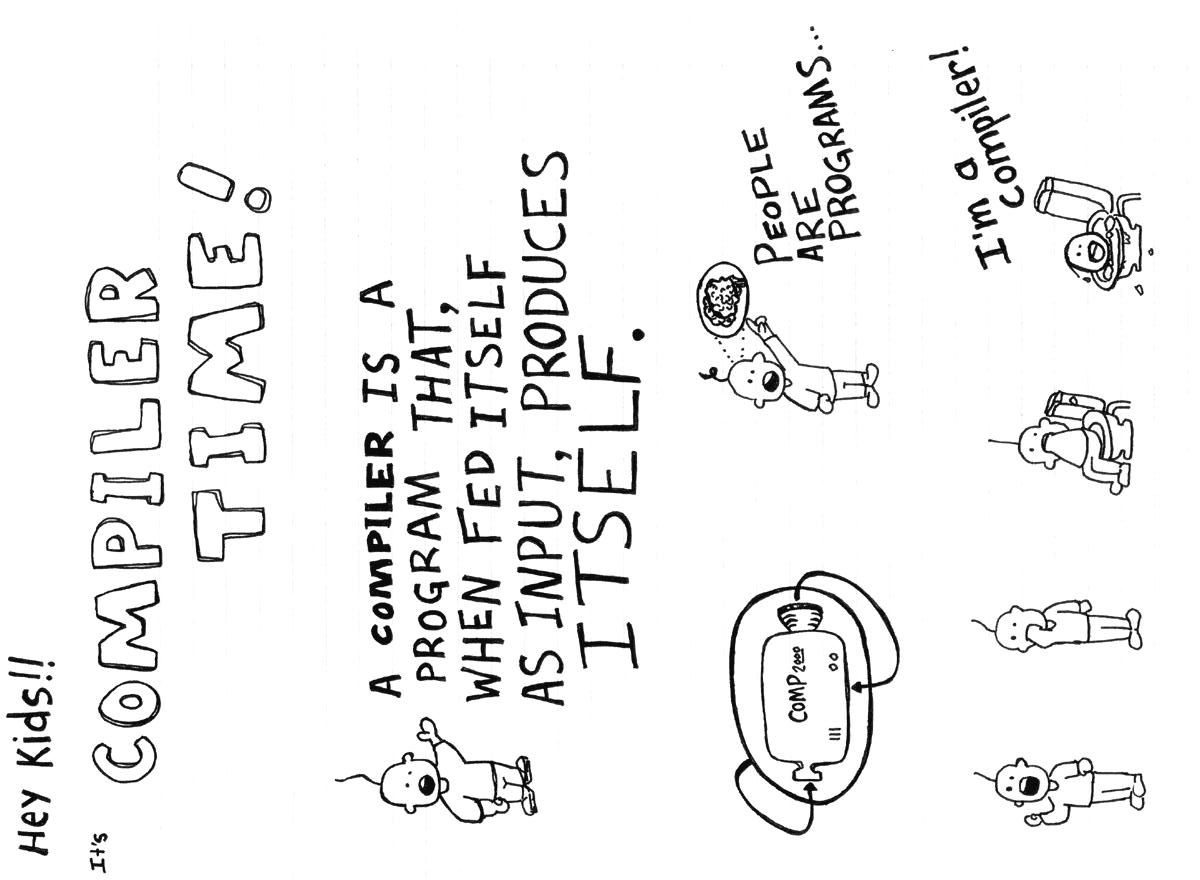 Hey Kids!!
It's
COMPILER
TIME!
A COMPILER IS A
PROGRAM THAT,
WHEN FED ITSELF
AS INPUT, PRODUCES
ITSELF.
COMP 2000
PEOPLE
ARE
PROGRAMS...
I'm a
compiler!